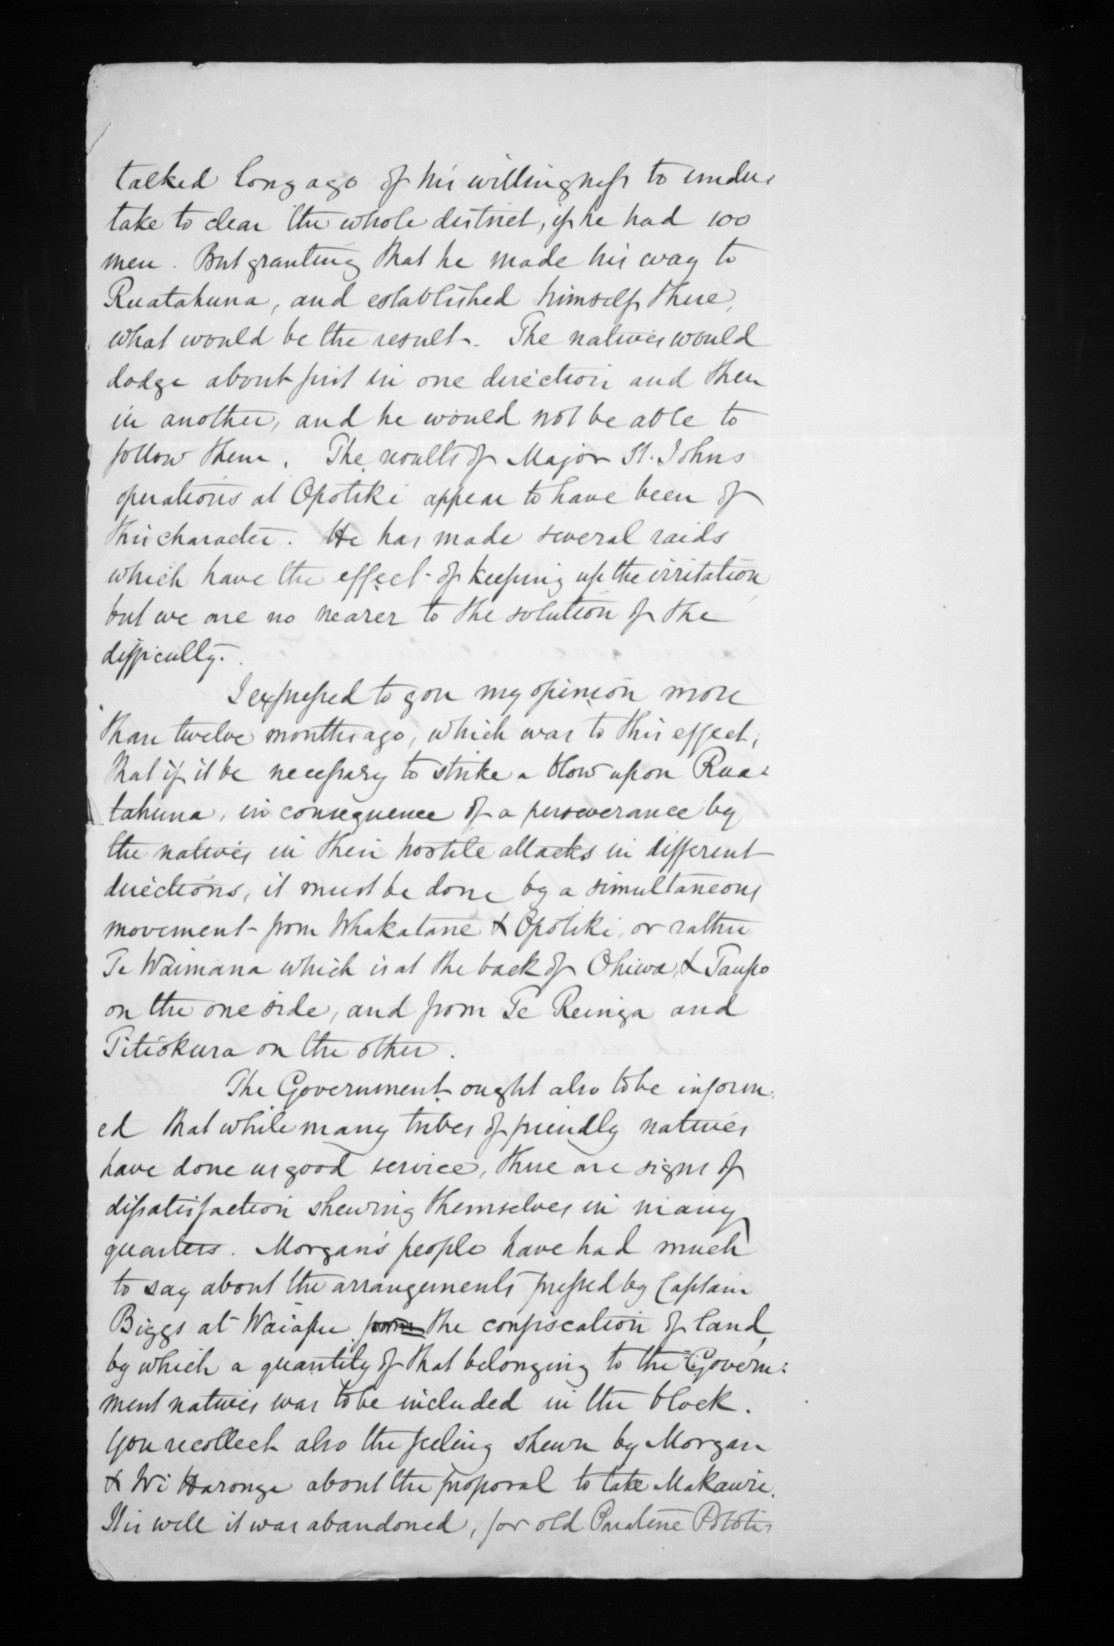 talked long ago of his willingness to under=
take to clear the whole district, if he had 100
men. But granting that he made his way to
Ruatahuna, and established himself there,
what would be the result. The natives would
dodge about first in one direction and then
in another, and he would not be able to
follow them. The results of Major St. Johns
operations at Opotiki appear to have been of
this character. He has made several raids
which have the effect of keeping up the irritation
but we are no nearer to the solution of the
difficulty.
I expressed to you my opinion more
than twelve months ago, which was to this effect,
that if it be necessary to strike a blow upon Rua=
tahuna, in consequence of a perseverance by
the natives in their hostile attacks in different
directions, it must be done by a simultaneous
movement from Whakatane & Opotiki, or rather
Te Waimana which is at the back of Ohiwa, & Taupo
on the one side, and from Te Reinga and
Titiokura on the other.
The Government ought also to be inform=
ed that while many tribes of friendly natives
have done us good service, there are signs of
dissatisfaction shewing themselves in many
quarters. Morgan's people have had much
to say about the arrangements pressed by Captain
Biggs at Waiapu from the confiscation of land,
by which a quantity of that belonging to the Govern=
ment natives was to be included in the block.
You recollect also the feeling shewn by Morgan
& Wi Haronga about the proposal to take Makauri.
It is well it was abandoned, for old Paratene Pototi=